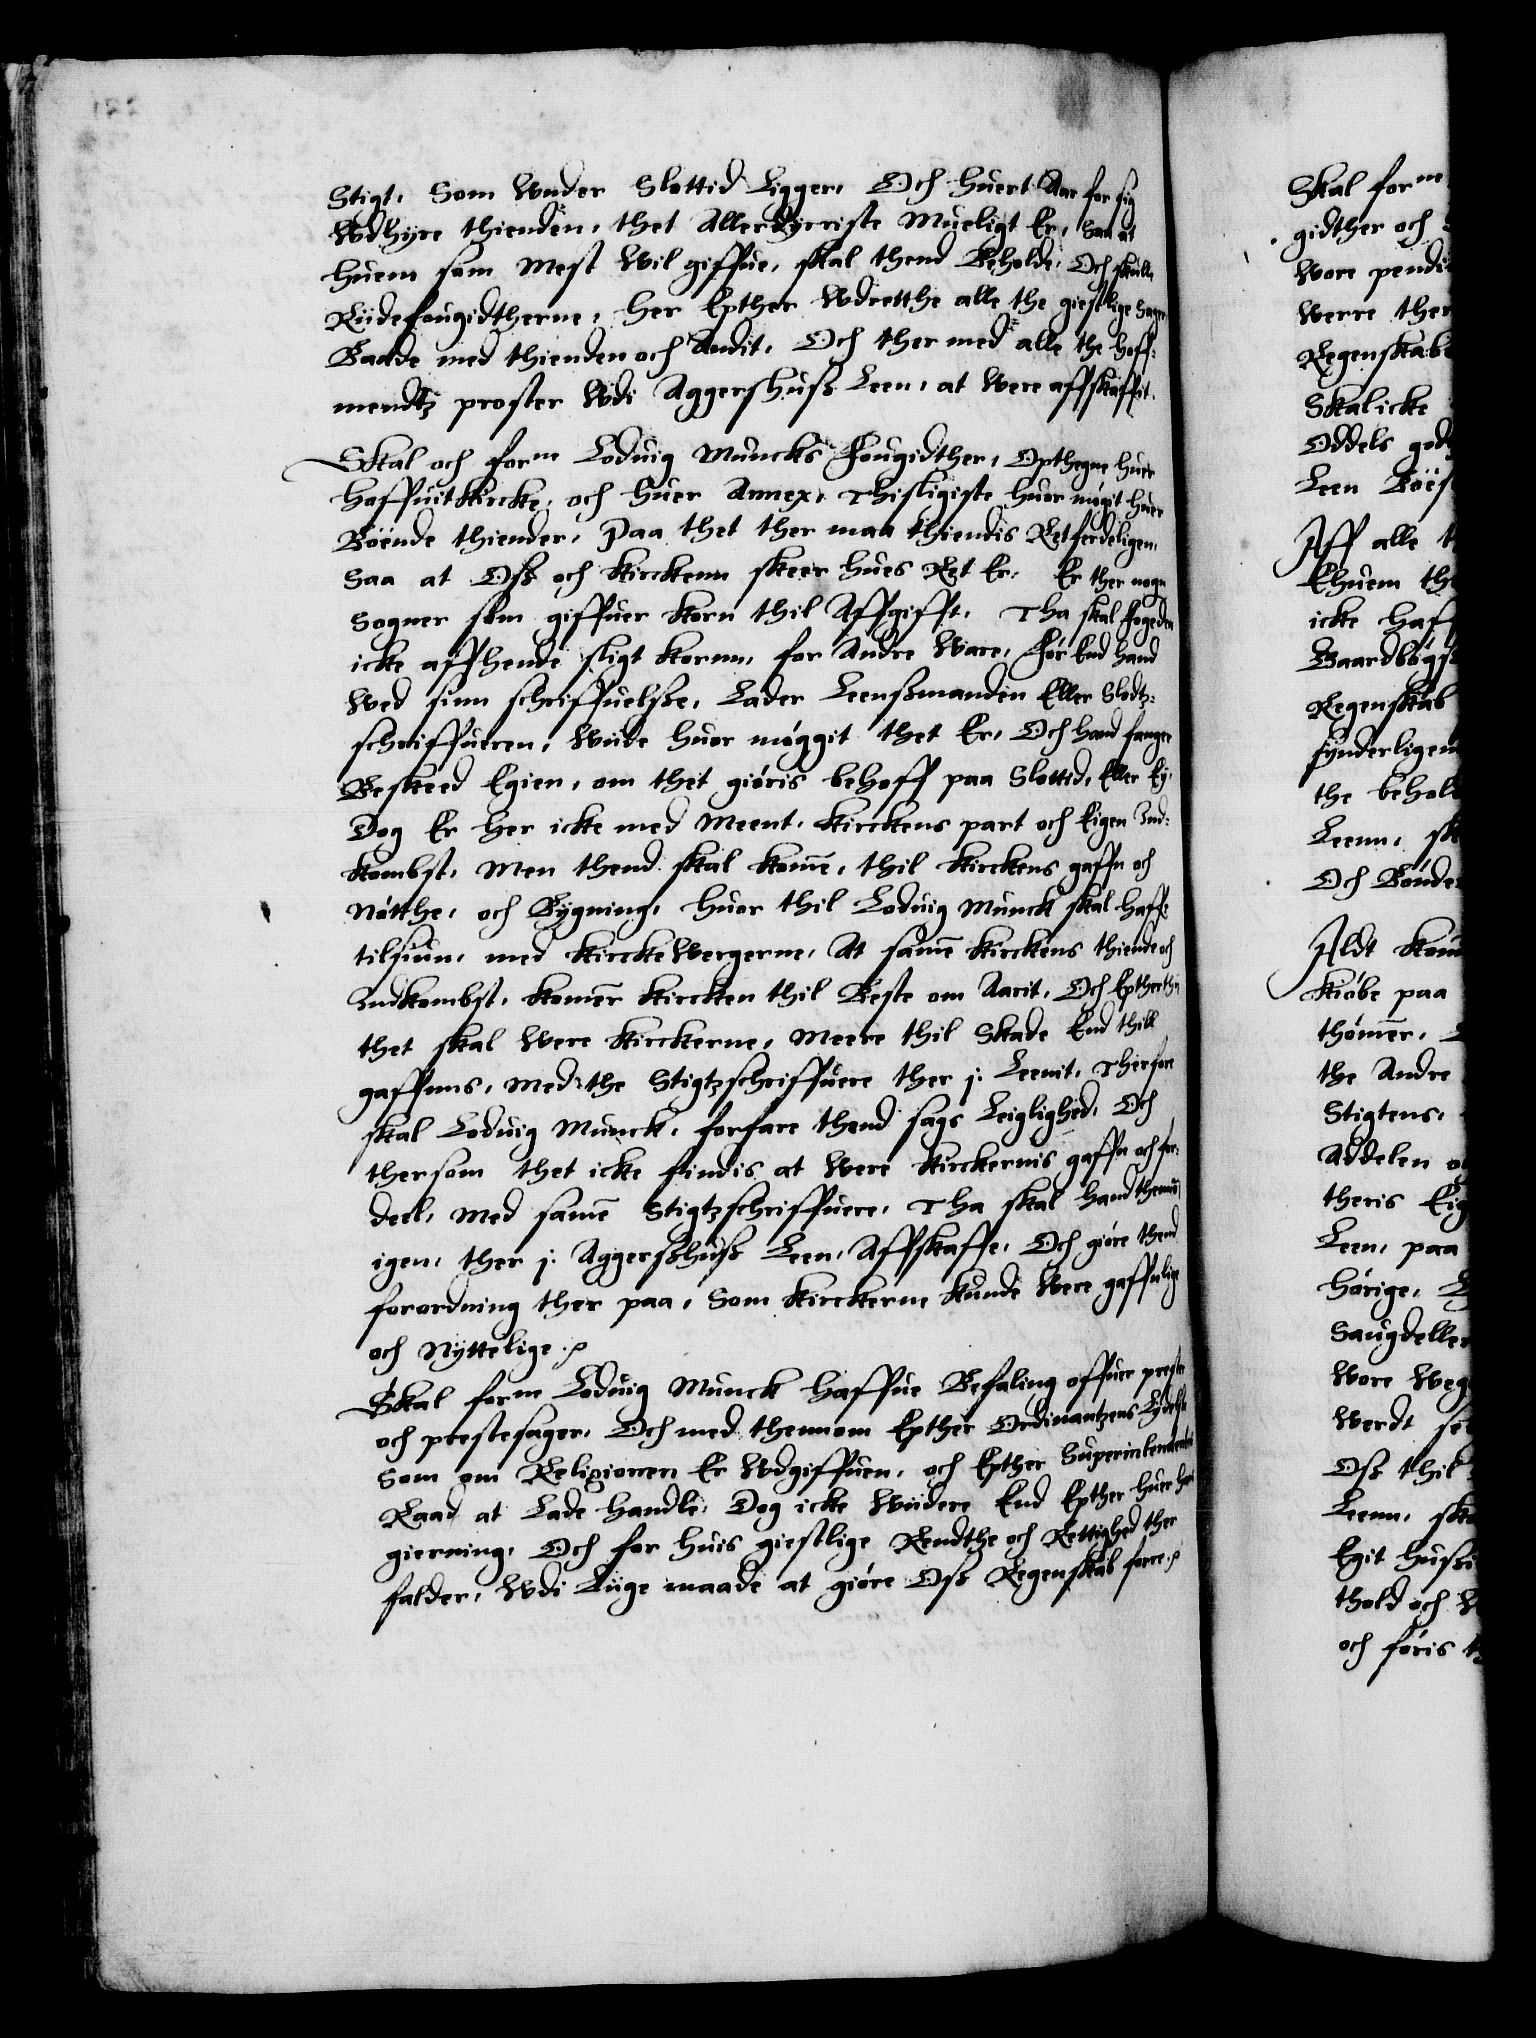 Stigt, Som Wnder Slottid Ligger, Och huert Aar for sig
Wdhyre thienden, thet Allerdyrriste Mueligt Er, Saa at
huem som Mest Wil giffue, skal thend Beholde, Och skulle
Riidefougidtherne, her Epther Wdretthe alle the giestlige Sager
Baade med thienden och Andit, Och ther med alle the hoff-
mendtz proster Wdi Aggershuss Leen, at Were affskaffit.
Skal och forne Loduig Muncks Fougidther, Opthegne huer
hoffuitkircke, och huer Annex, Thisligiste huor mögit huer
Böende thiender, Paa thet ther maa thiendis Retferdeligen,
Saa at Oss och kirckenn skeer hues Ret Er, Er ther nogn
Sogner som giffuer korn thil Affgifft, Tha skal ffogeden
icke affhende sligt kornn, for Andre Ware, För End hand
Wed sinn schriffuelsse, Lader Leenssmanden Eller Slodtz-
schriffueren, Wiide huor möggit thet Er, Och hand fanger
Beskeed Egien, om thet giöris behoff paa Slottid, Eller Ey,
Dog Er her icke med Meent, kirckens part och Eigen Ind-
kombst, Men thend skal kome, thil kirckens gaffn och
Nötthe, och Bygning, huor thil Loduig Munck skal haffe
tilsiun, med kircke Wergerne, At same kirckens thiende och
Indkombst, komer kircken thil Beste om Aarit, Och Epther thi
thet skal Were kirckerne, Meere thil Skade End thill
gaffuns, Med the Stigtzschriffuere ther j Leenit, Therfore
skal Loduig Munck, forfare thend sags Leiglighed, Och
thersom thet icke findis at Were kirckernis gaffn och for-
deel, Med same Stigtzschriffuere, Tha skal hand thennu
igen, ther j Aggersshuss Leen, Affskaffe, Och giöre thend
forordning ther paa, Som kirckerne kunde Were gaffnlig
och Nyttelige.
Skal forne Loduig Munck haffue Befaling offuer preste
och prestesager, Och med thennom Epther Ordinantzens Lydelse
Som om Religionen Er Wdgiffuen, och Epther Superintendentens
Raad at Lade handle, Dog icke Wiidere End Epther huer hans
gierning, Och for huis giestlige Rendthe och Rettighed ther
falder, Wdi Liige maade at giöre Oss Regenskab forre.
Skal forne
gidther och
Wore pendi
Werre ther
Regenskab
Skal icke
Oddels god
Leen
Aff alle
Ehuem th
icke haf
Regenskab
synderligen
the behol
Leenn, sk
Och Bönde
Aldt kom
kiöbe paa
thömer,
the Andre
Stigtens,
Addelen o
theris Eig
Leen, paa
hörige,
Wore Weg
Werdt
Oss thil
Leenn, ska
Egit hussi
thold och
och föris